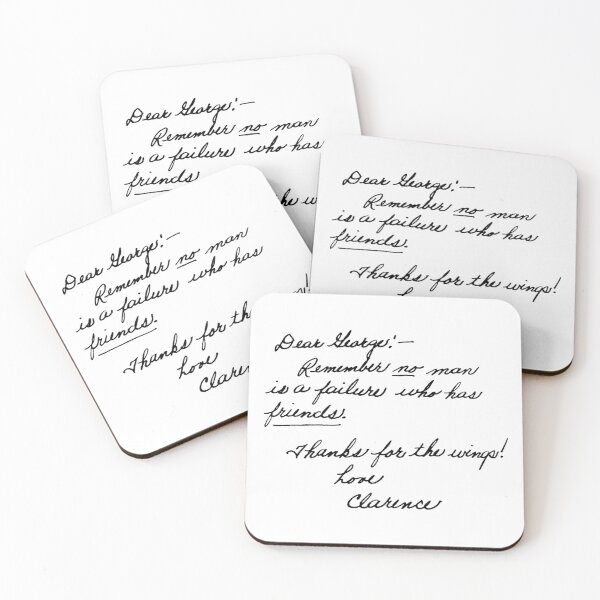 Dear George:—
Remember no man
is a failure who has
friends
Dear George:—
Remember no man
is a failure who has
friends.
Thanks for the wings!
Dear George:—
Remember no man
is a failure who has
friends.
Thanks for the
Love
Claren
Dear George:—
Remember no man
is a failure who has
friends.
Thanks for the wings!
Love
Clarence